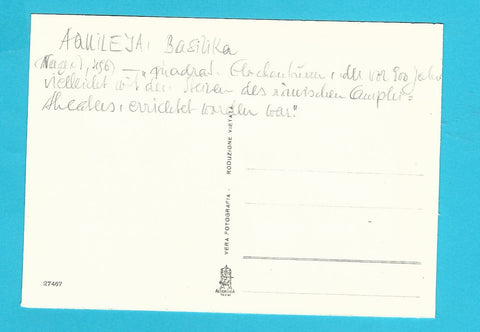 AQUILEJA, Basilika
(Nagel, 296) — „quadrat. Glockenturm, der vor 900 Jahren
vielleicht mit den Steinen des römischen Amphi=
theaters, errichtet worden war."
VERA FOTOGRAFIA - RODUZIONE VIETATA
27467